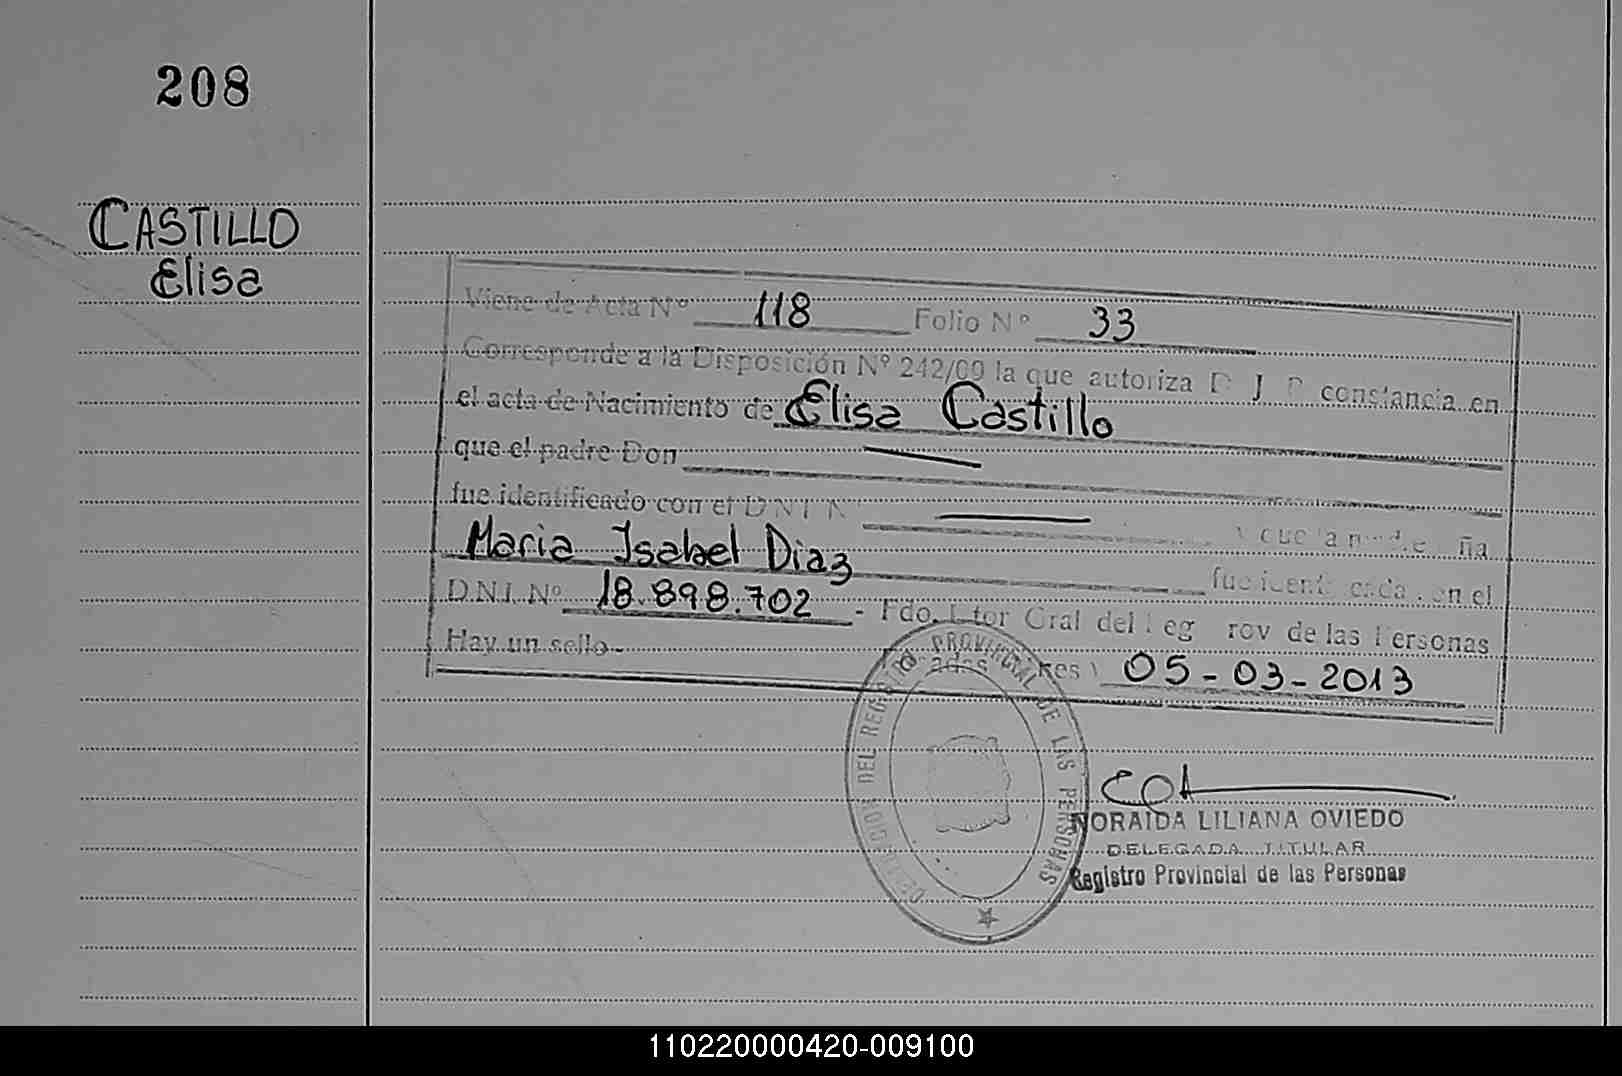 208
CASTILLO
Elisa
Viene de Acta Nº 118 Folio Nº 33
Corresponde a la Disposición Nº 242/09 la que autoriza D J P constancia en
el acta de Nacimiento de Elisa Castillo
que el padre Don —
fue identificado con el D N I N —
Maria Isabel Diaz
DNI. Nº 18.898.702 - Fdo. del de las Personas
Hay un sello.- 05-03-2013
DEL REGISTRO PROVINCIAL DE LAS PERSONAS
NORAIDA LILIANA OVIEDO
DELEGADA TITULAR
Registro Provincial de las Personas
110220000420-009100